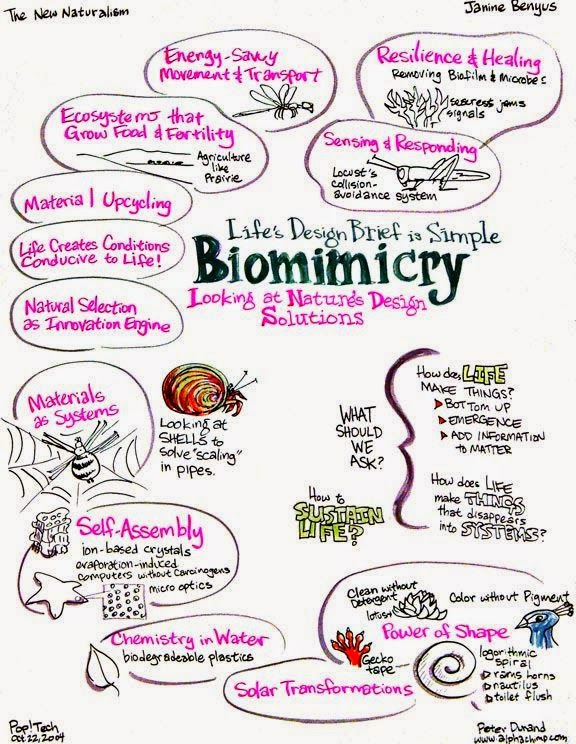 The New Naturalism
Janine Benyus
Energy-Savvy
Movement & Transport
Resilience & Healing
Removing Biofilm & Microbes
seacress jams
signals
Ecosystems that
Grow Food & Fertility
Agriculture
like
Prairie
Sensing & Responding
Locust's
collision-
avoidance system
Material Upcycling
Life Creates Conditions
Conducive to Life!
Natural Selection
as Innovation Engine
Life's Design Brief is Simple
Biomimicry
Looking at Nature's Design
Solutions
Materials
as Systems
Looking at
SHELLS to
solve "scaling"
in pipes.
WHAT
SHOULD
WE
ASK?
How does LIFE
MAKE THINGS?
BOTTOM UP
EMERGENCE
ADD INFORMATION
to MATTER
How does LIFE
make THINGS
that disappears
into SYSTEMS?
How to
SUSTAIN
LIFE?
Self-Assembly
ion-based crystals
evaporation-induced
computers without carcinogens
micro optics
Chemistry in Water
biodegradeable plastics
Solar Transformations
Clean without
Detergent
lotus
Color without Pigment
Power of Shape
Gecko
tape
logorithmic
spiral
rams horns
nautilus
toilet flush
Pop!Tech
Oct 22, 2004
Peter Durand
www.alphachimp.com